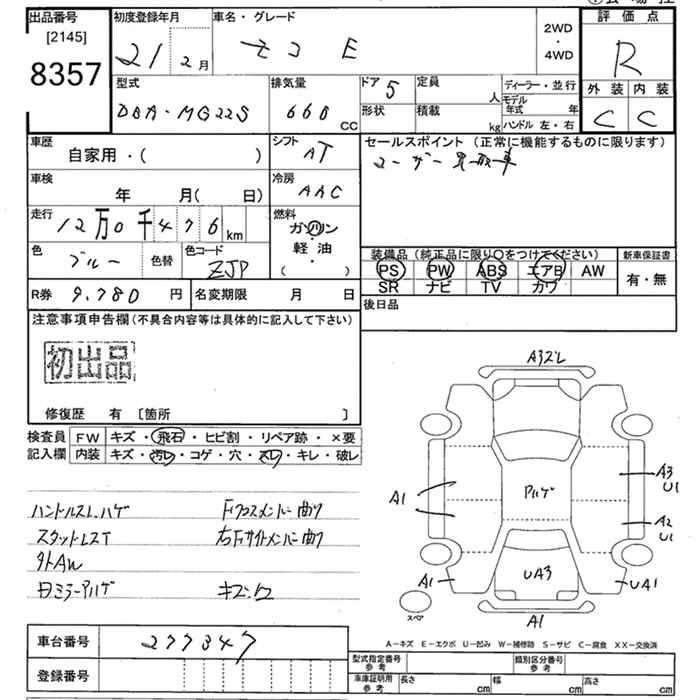 出品番号
[2145]
8357
初度登録年月
21 2月
車名・グレード
モコ E
2WD
・
4WD
評価点
R
外装 内装
C C
型式
DBA-MG22S
排気量
660 CC
ドア 5
形状
定員 人
積載 kg
ディーラー・並行
モデル年式 年
ハンドル 左・右
車歴
自家用・( )
シフト
AT
車検
年 月( 日)
冷房
AAC
走行
12万0千476km
燃料
ガソリン
・
軽油
( )
色 ブルー
色替
色コード ZJP
R券 9.780 円
名変期限 月 日
セールスポイント (正常に機能するものに限ります)
ユーザー買取車
装備品 (純正品に限り○をつけてください)
PS PW ABS エアB AW
SR ナビ TV カワ
新車保証書
有・無
後日品
注意事項申告欄 (不具合内容等は具体的に記入して下さい)
初出品
修復歴 有 [箇所 ]
検査員記入欄
FW キズ・飛石・ヒビ割・リペア跡・×要
内装 キズ・汚レ・コゲ・穴・スレ・キレ・破レ
ハンドルスレ.ハゲ
Fクロスメンバー曲り
スタットレスT
右Fサイドメンバー曲り
外AW
日ミラーアルゲ
キズ.凹
A3凹L
A1
アルゲ
A3
U1
A2
U1
A1
UA3
UA1
A1
スペア
A−キズ E−エクボ U−凹み W−補修跡 S−サビ C−腐食 XX−交換済
車台番号 277347
登録番号
型式指定番号 参考
類別区分番号 参考
車庫証明用 参考
長さ cm
幅 cm
高さ cm